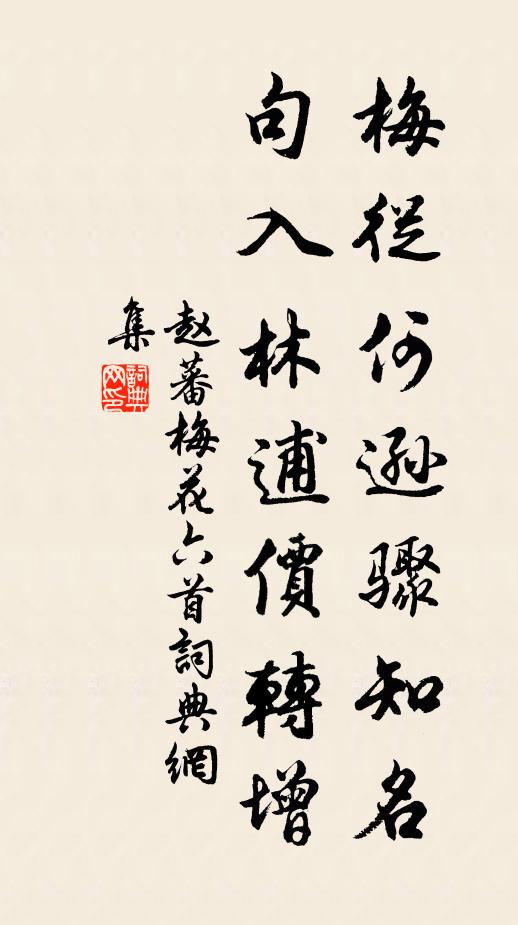 梅從何遜驟知名
句入林逋價轉增
赵蕃梅花六首詞典網
集
詞典網印